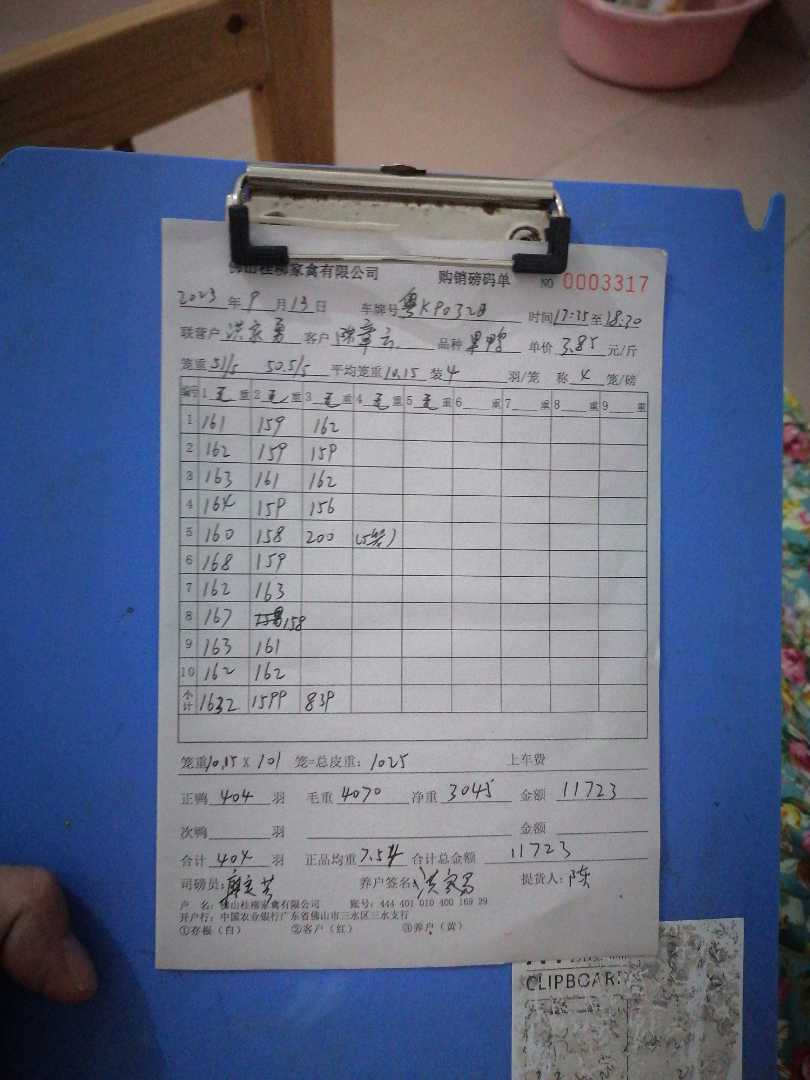 佛山桂柳家禽有限公司 购销磅码单 NO 0003317
2023 年 9 月 13 日 车牌号 粤KP032 时间 17:35 至 18:30
联营户 洪家勇 客户 陈章云 品种 单价 3.85 元/斤
笼重 51/5 50.5/5 平均笼重 10.15 装 4 羽/笼 称 4 笼/磅
编号 1 毛 重 2 毛 重 3 毛 重 4 毛 重 5 毛 重 6 重 7 重 8 重 9 重
1 161 159 162
2 162 159 159
3 163 161 162
4 164 159 156
5 160 158 200 (5笼)
6 168 159
7 162 163
8 167 158
9 163 161
10 162 162
小计 1632 1599 839
笼重 10.15 X 101 笼=总皮重: 1025 上车费
正鸭 404 羽 毛重 4070 净重 3045 金额 11723
次鸭 羽 金额
合计 404 羽 正品均重 7.54 合计总金额 11723
司磅员: 养户签名: 洪家勇 提货人: 陈
户 名: 佛山桂柳家禽有限公司 账号: 444 401 010 400 169 29
开户行: 中国农业银行广东省佛山市三水区三水支行
①存根(白) ②客户(红) ③养户(黄)
CLIPBOARD